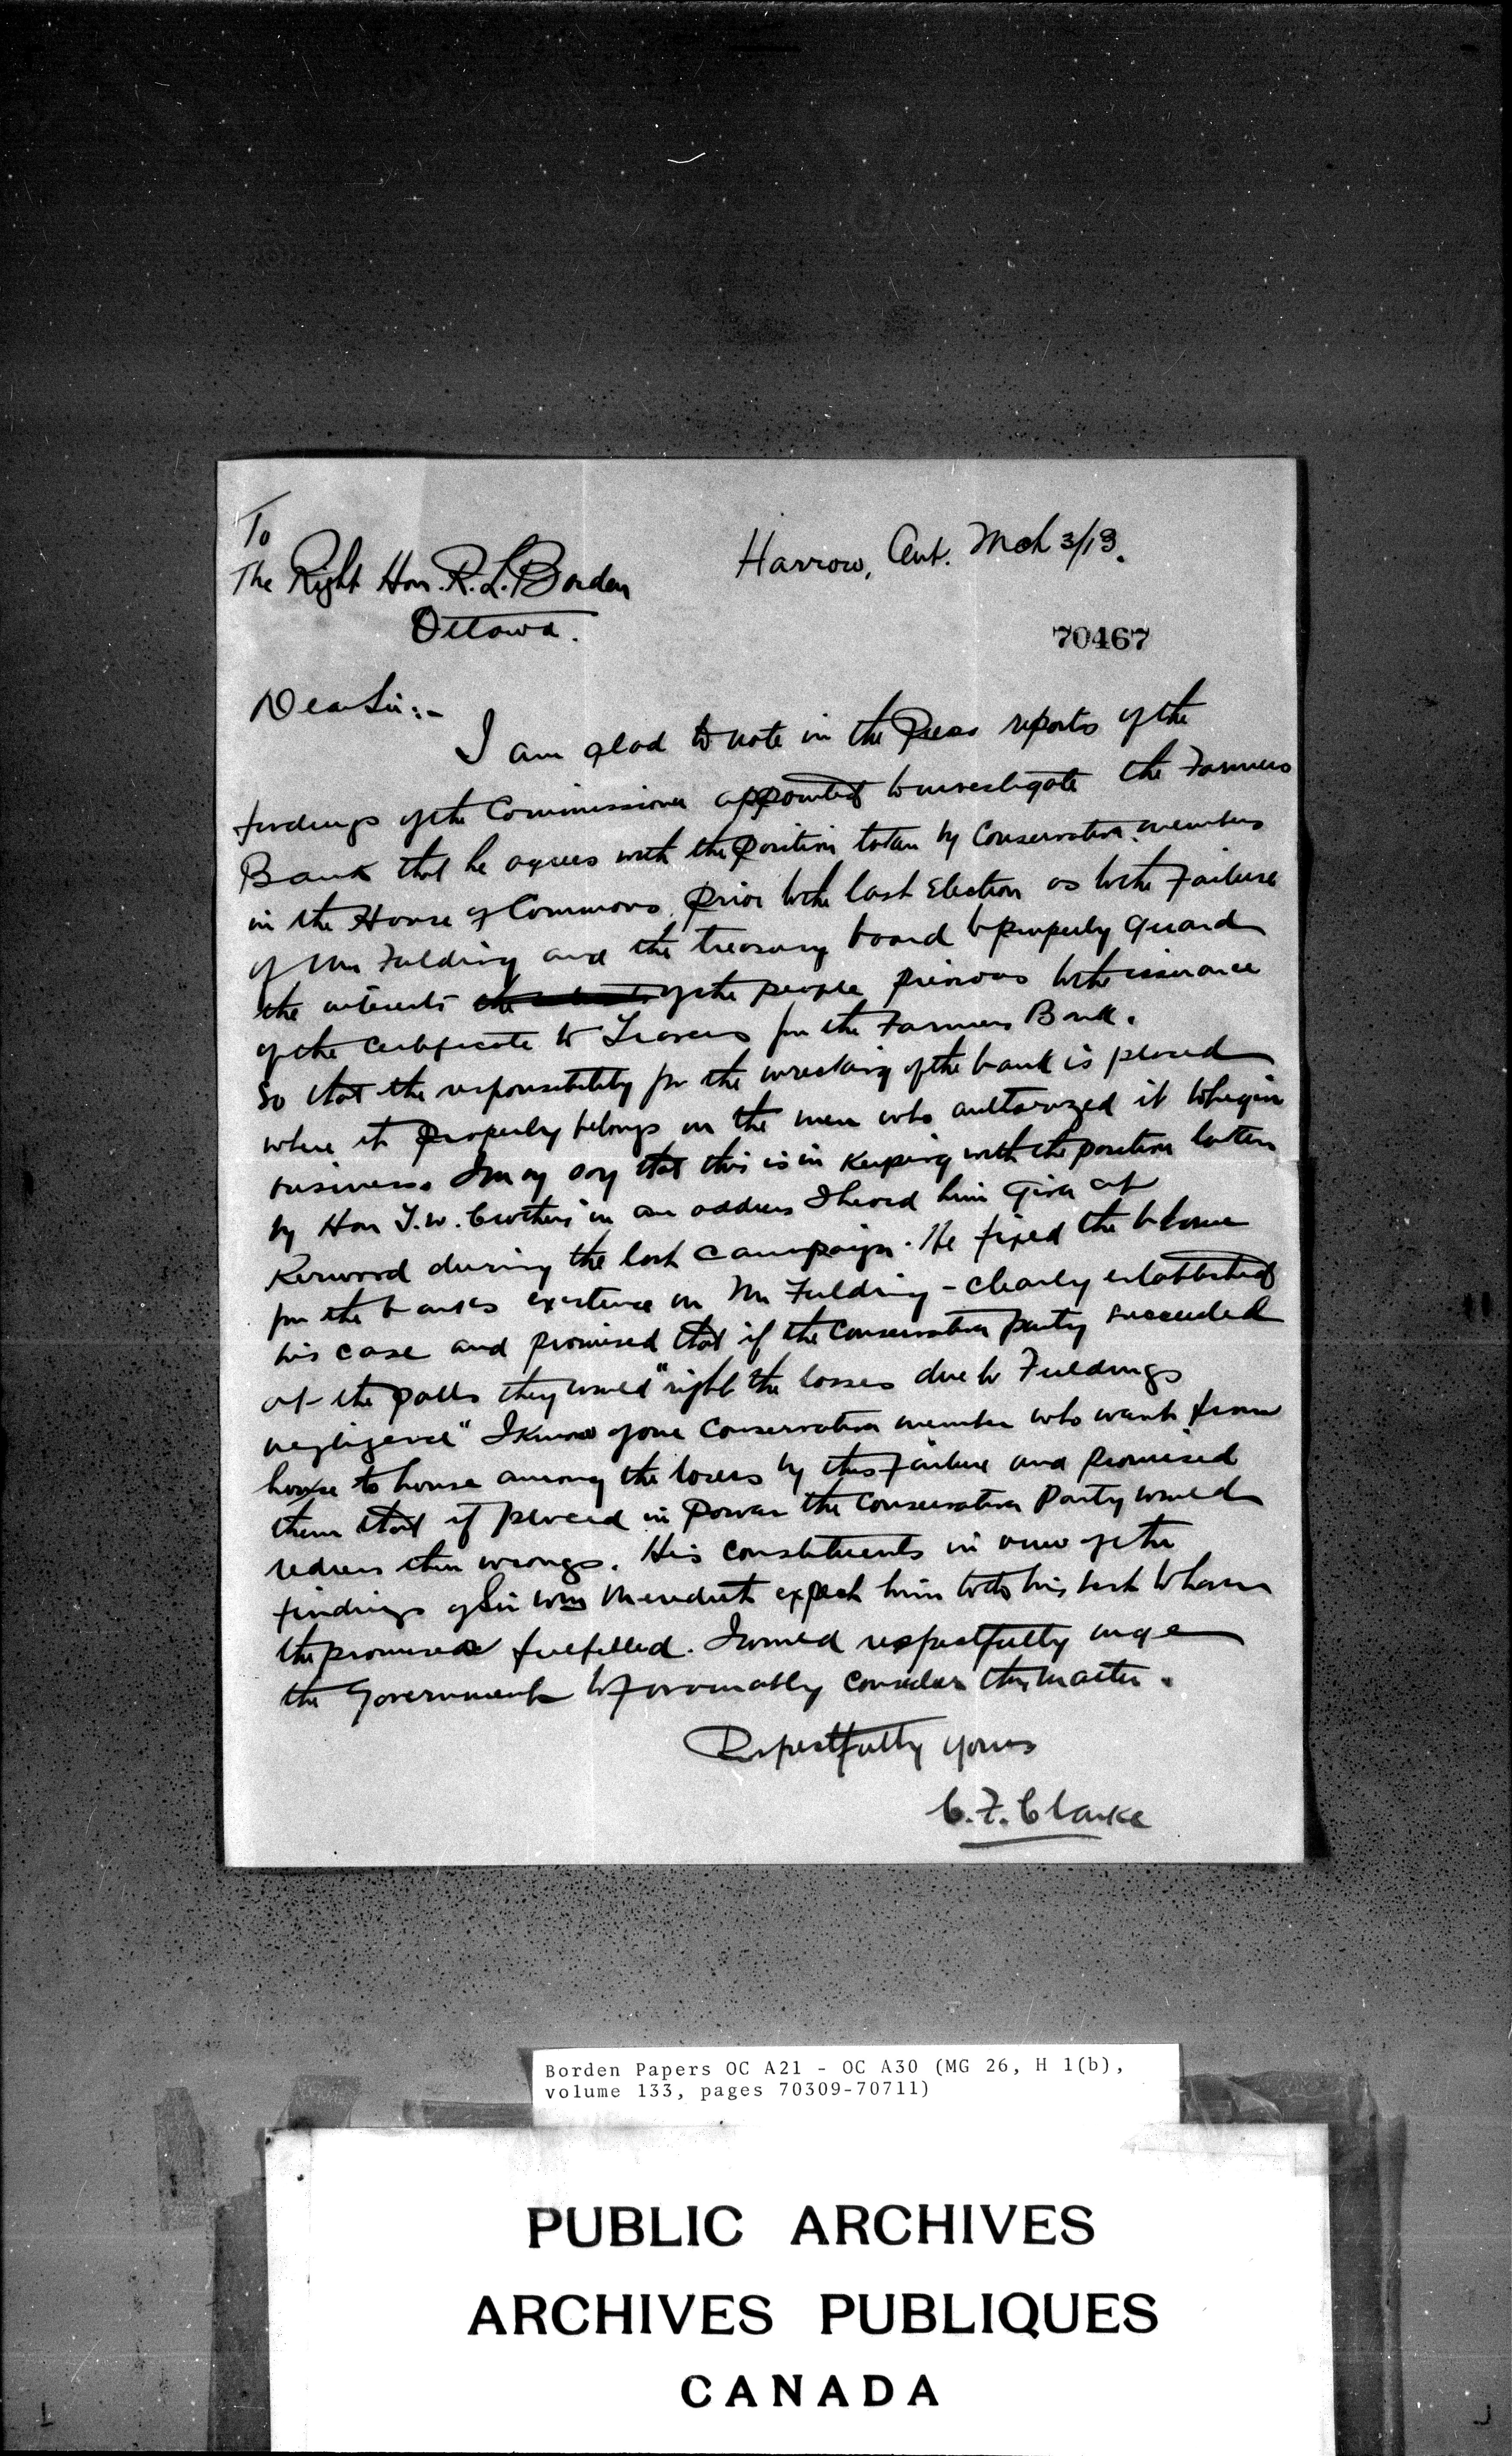 To
The Right Hon. R. L. Borden
Ottawa.
Harrow, Ont. Mch 3/13.
70467
Dear Sir:-
I am glad to note in the Press reports of the
findings of the Commissioner appointed to investigate the Farmers
Bank that he agrees with the position taken by Conservative members
in the House of Commons prior to the last Election as to the Failure
of Mr Fielding and the treasury board to properly guard
the interests of the people previous to the issuance
of the Certificate to Travers for the Farmers Bank.
So that the responsibility for the wrecking of the bank is placed
where it properly belongs on the men who authorized it to begin
business. I may say that this is in keeping with the position taken
by Hon T. W. Crothers in an address I heard him give at
Kerwood during the last campaign. He fixed the blame
for the banks existence on Mr Fielding - clearly established
his case and promised that if the Conservative party succeeded
at the polls they would "right the losses due to Fieldings
negligence" I know of one Conservative member who went from
house to house among the losers by this failure and promised
them that if placed in power the Conservative Party would
redress their wrongs. His constituents in view of the
findings of Sir Wm Meredith expect him to do his best to have
the promises fulfilled. I would respectfully urge
the Government to favourably consider this matter.
Respectfully yours
C. F. Clarke
Borden Papers OC A21 - OC A30 (MG 26, H 1(b),
volume 133, pages 70309-70711)
PUBLIC ARCHIVES
ARCHIVES PUBLIQUES
CANADA